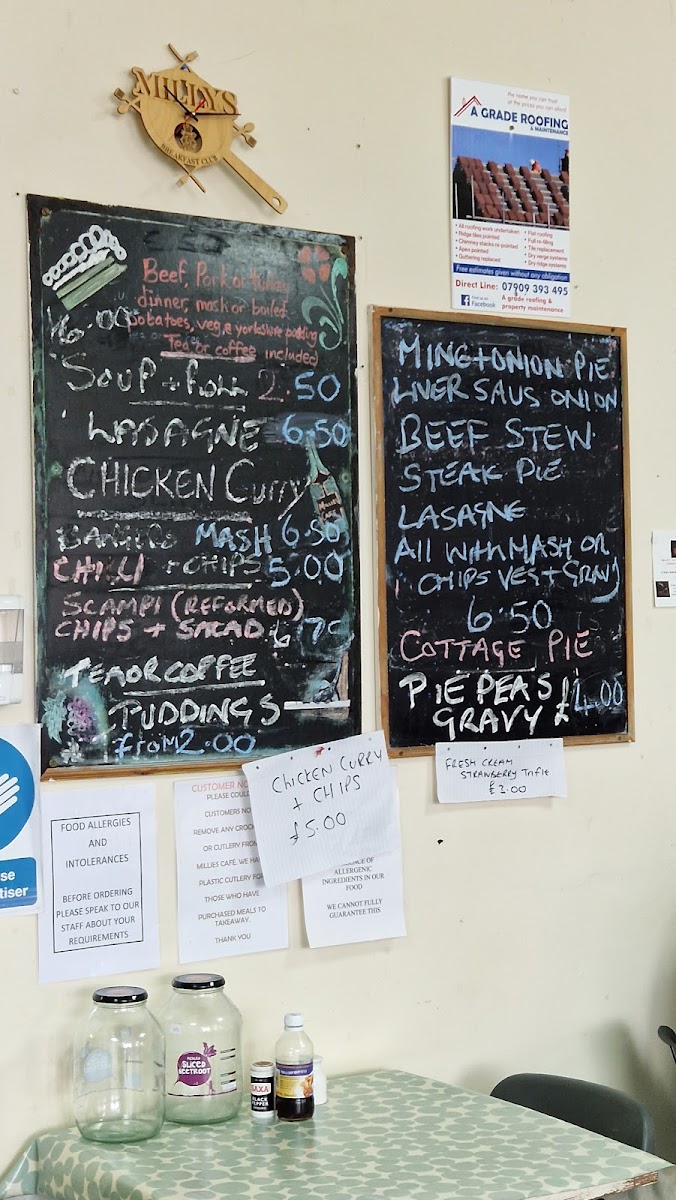 MILLYS
BREAKFAST CLUB
The name you can trust
at the prices you can afford
A GRADE ROOFING
& MAINTENANCE
• All roofing work undertaken
• Ridge tiles pointed
• Chimney stacks re-pointed
• Apex pointed
• Guttering replaced
• Flat roofing
• Full re-filting
• Tile replacement
• Dry verge systems
• Dry ridge systems
Free estimates given without any obligation
Direct Line: 07909 393 495
Find us on
Facebook
A grade roofing &
property maintenance
Beef, Pork or turkey
dinner, mash or boiled
6.00 potatoes, veg, & yorkshire pudding
Tea or coffee included
SOUP + ROLL 2.50
LASAGNE 6.50
CHICKEN Curry
MASH 6.50
CHILLI + CHIPS 5.00
SCAMPI (REFORMED)
CHIPS + SALAD 6.
TEA OR COFFEE
PUDDINGS
from 2.00
MINC+ONION PIE
LIVER SAUS ONION
BEEF STEW
STEAK PIE
LASAGNE
All WITH MASH OR
CHIPS VEG + GRAVY
6.50
COTTAGE PIE
PIE PEAS £4.00
GRAVY
CHICKEN CURRY
+ CHIPS
£5.00
FRESH CREAM
STRAWBERRY Trifle
£2.00
se
tiser
FOOD ALLERGIES
AND
INTOLERANCES
BEFORE ORDERING
PLEASE SPEAK TO OUR
STAFF ABOUT YOUR
REQUIREMENTS
CUSTOMER NO
PLEASE COULD
CUSTOMERS NO
REMOVE ANY CROC
OR CUTLERY FROM
MILLIES CAFÉ. WE HA
PLASTIC CUTLERY FO
THOSE WHO HAVE
PURCHASED MEALS TO
TAKEAWAY.
THANK YOU
OF
ALLERGENIC
INGREDIENTS IN OUR
FOOD
WE CANNOT FULLY
GUARANTEE THIS
SLICED
BEETROOT
SAXA
BLACK
PEPPER